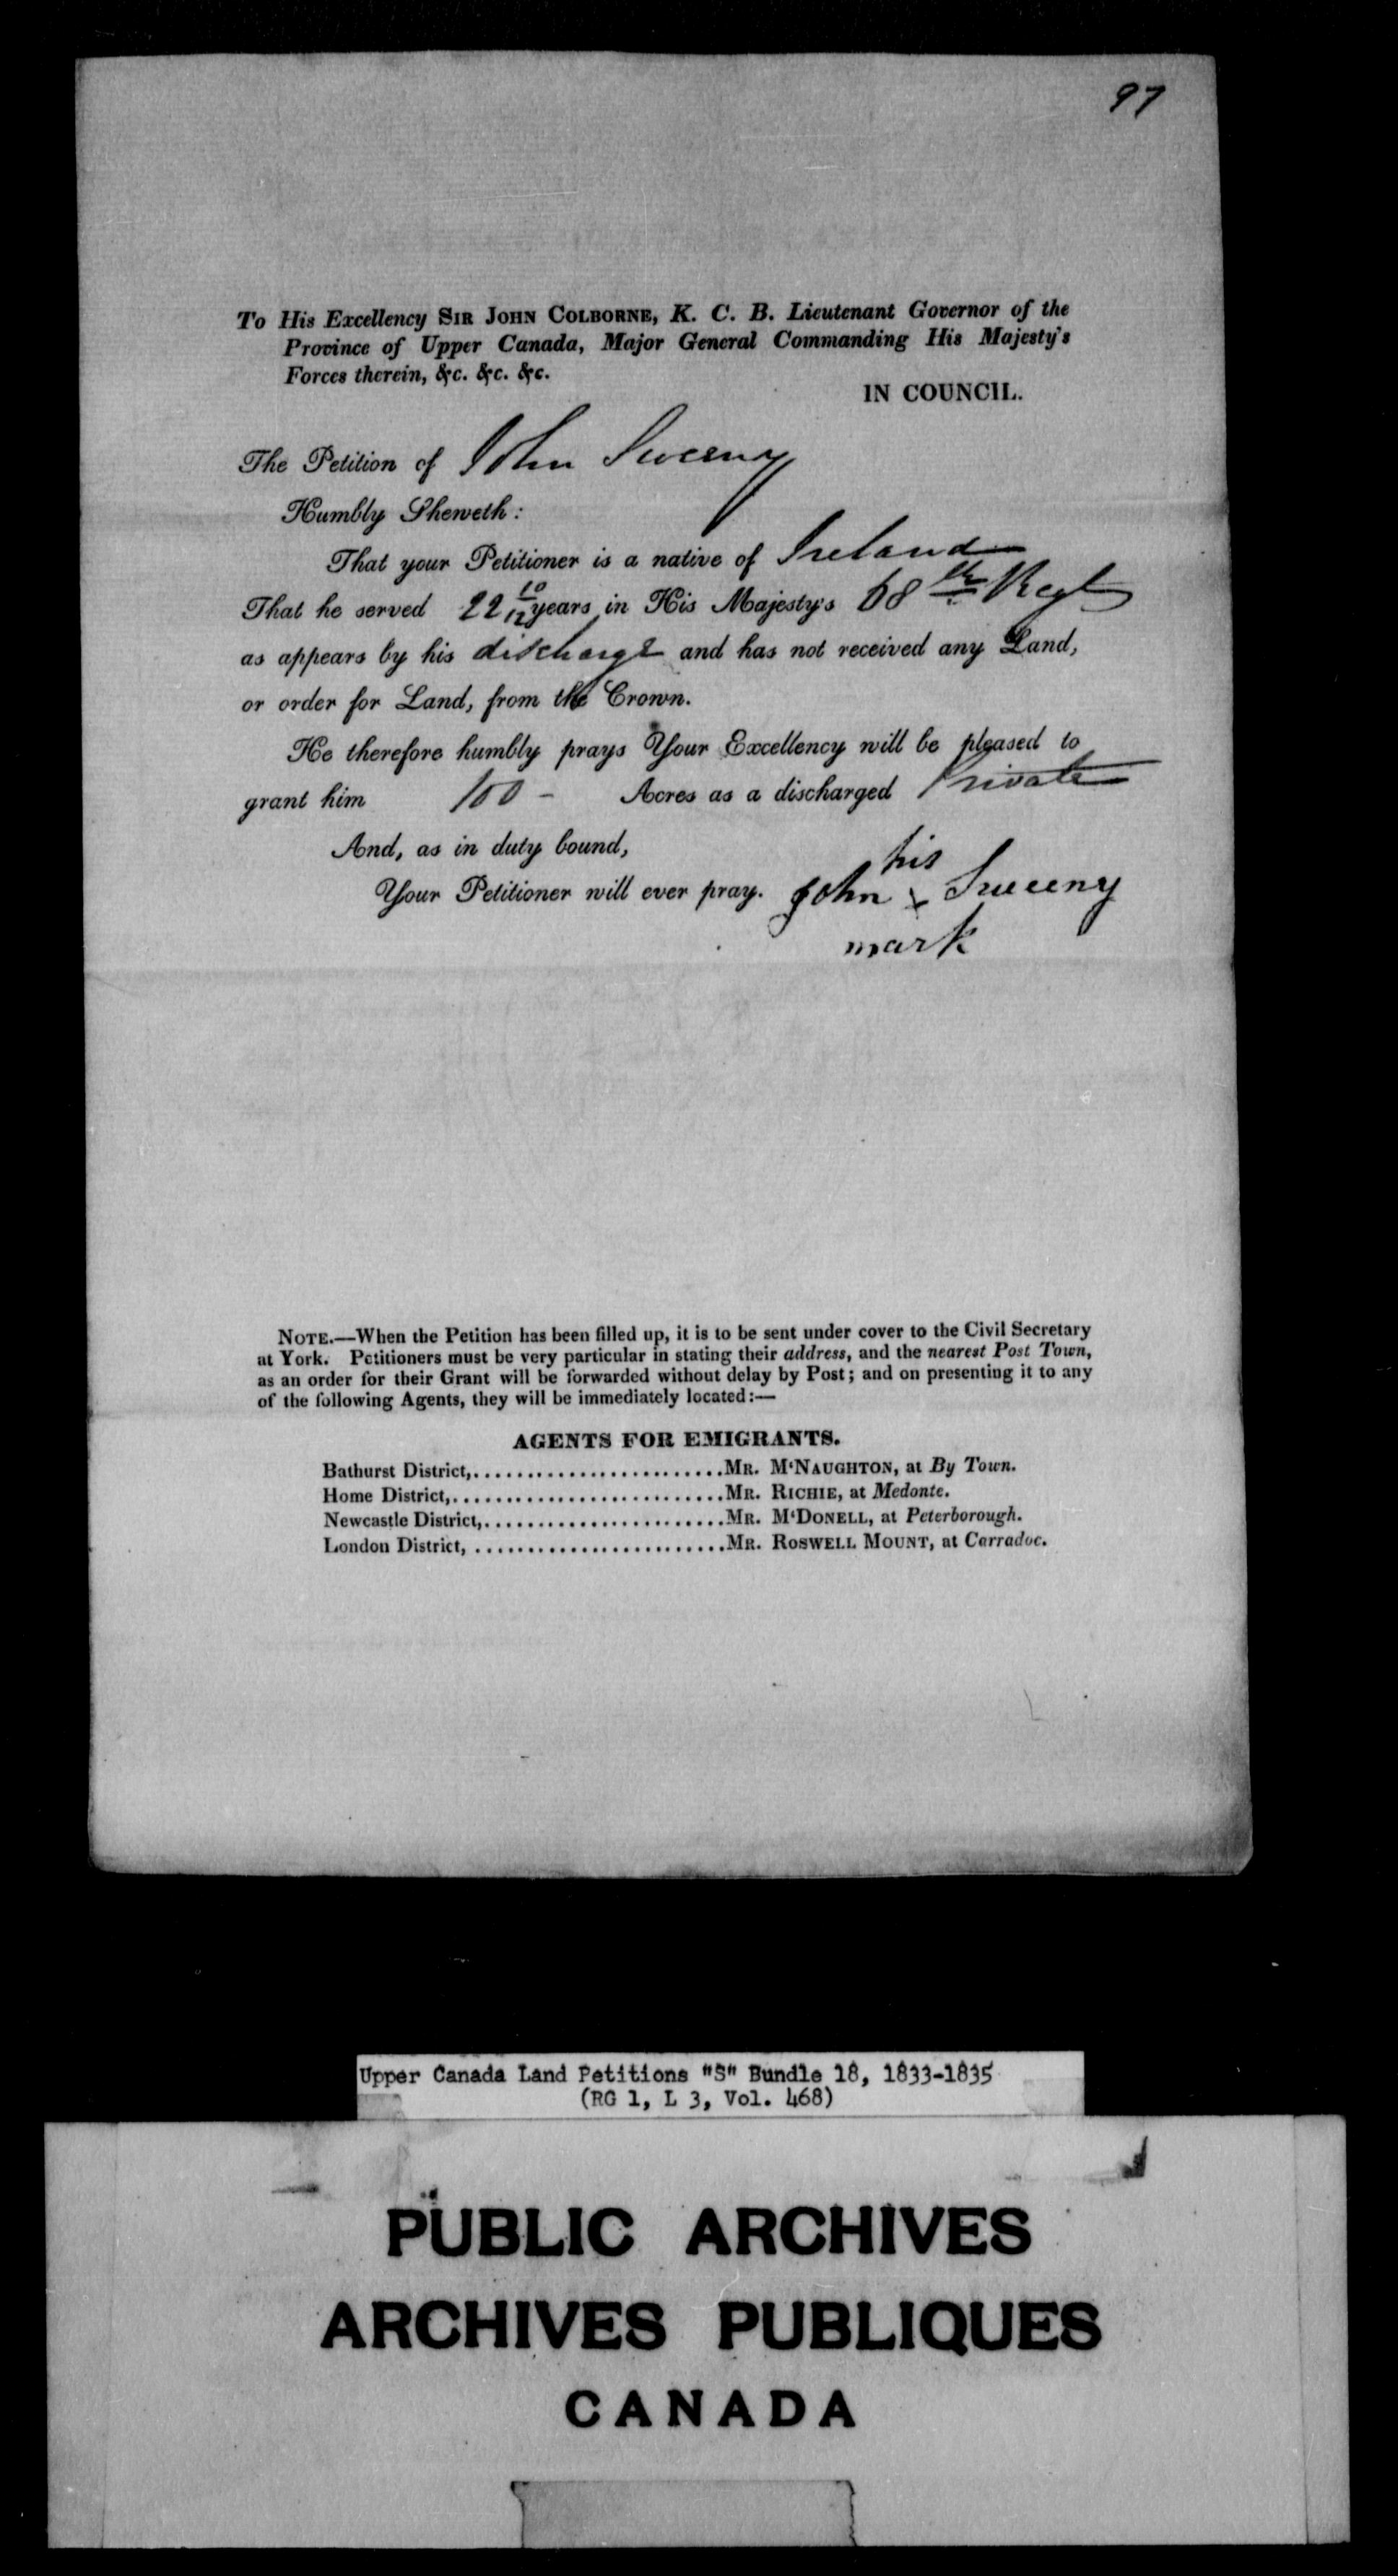 97
To His Excellency SIR JOHN COLBORNE, K. C. B. Lieutenant Governor of the
Province of Upper Canada, Major General Commanding His Majesty's
Forces therein, &c. &c. &c.
IN COUNCIL.
The Petition of John Sweeny
Humbly Sheweth:
That your Petitioner is a native of Ireland
That he served 22 10/12 years in His Majesty's 68th Regt
as appears by his discharge and has not received any Land,
or order for Land, from the Crown.
He therefore humbly prays Your Excellency will be pleased to
grant him 100 - Acres as a discharged Private
And, as in duty bound,
his
Your Petitioner will ever pray. John x Sweeny
mark
NOTE.—When the Petition has been filled up, it is to be sent under cover to the Civil Secretary
at York. Petitioners must be very particular in stating their address, and the nearest Post Town,
as an order for their Grant will be forwarded without delay by Post; and on presenting it to any
of the following Agents, they will be immediately located:—
AGENTS FOR EMIGRANTS.
Bathurst District,........................MR. M'NAUGHTON, at By Town.
Home District,..........................MR. RICHIE, at Medonte.
Newcastle District,.......................MR. M'DONELL, at Peterborough.
London District, ........................MR. ROSWELL MOUNT, at Carradoc.
Upper Canada Land Petitions "S" Bundle 18, 1833-1835
(RG 1, L 3, Vol. 468)
PUBLIC ARCHIVES
ARCHIVES PUBLIQUES
CANADA